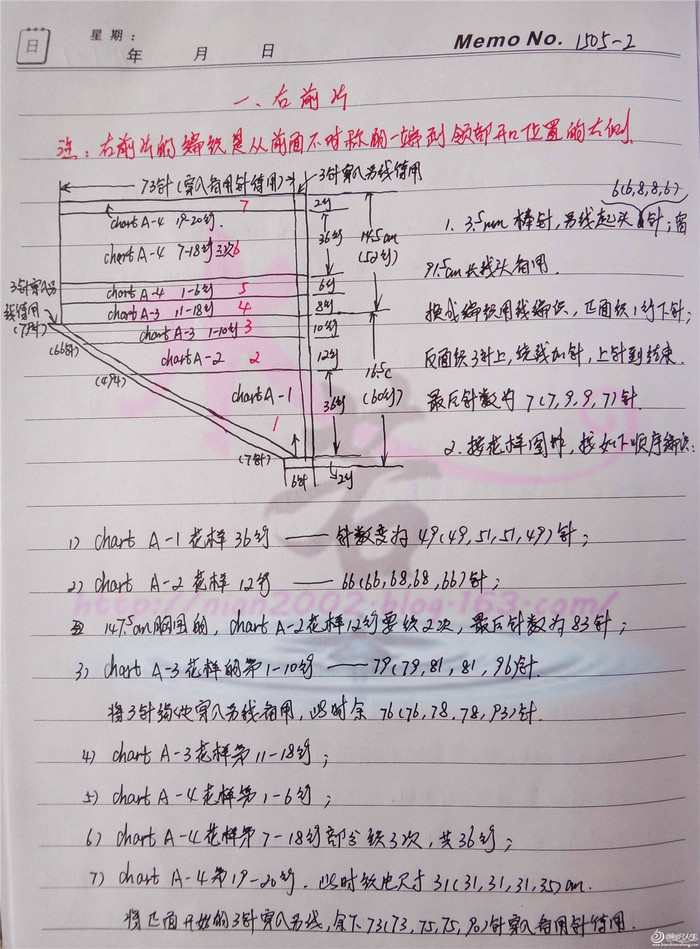 日
星 期：
年 月 日
Memo No. 1505-2
一、右前片
注：右前片的编织是从前面不对称的一端到领部开口位置的右侧.
73针(穿入备用针待用)
3针穿入另线待用
chart A-4 19-20行. 7
chart A-4 7-18行 3次 6
chart A-4 1-6行 5
chart A-3 11-18行 4
chart A-3 1-10行 3
chart A-2 2
chart A-1
1
2行
36行
6行
8行
10行
12行
36行
2行
14.5cm
(52行)
16.5c
(60行)
3针穿入另
线待用
(79针)
(66针)
(49针)
(7针)
6针
6(6,8,8,6)
1. 3.5mm 棒针, 另线起头 针; 留
91.5cm长线头备用.
换成编织用线编织, 正面织1行下针;
反面织3针上, 绕线加针, 上针到结束.
最后针数为 7(7,9,9,7)针.
2. 按花样图解, 按如下顺序编织:
1) chart A-1 花样 36行 —— 针数变为 49(49,51,51,49)针;
2) chart A-2 花样 12行 —— 66(66,68,68,66)针;
147.5cm胸围的, chart A-2花样12行要织2次, 最后针数为83针;
3) chart A-3 花样的第1-10行 —— 79(79,81,81,96)针.
将3针 穿入另线备用, 此时余 76(76,78,78,93)针.
4) chart A-3花样第11-18行;
5) chart A-4花样第1-6行;
6) chart A-4花样第7-18行部分织3次, 共36行;
7) chart A-4第19-20行. 此时织片尺寸31(31,31,31,35)cm.
将正面开始的3针穿入另线, 余下73(73,75,75,90)针穿入备用针待用.
http://nian2002.blog.163.com/